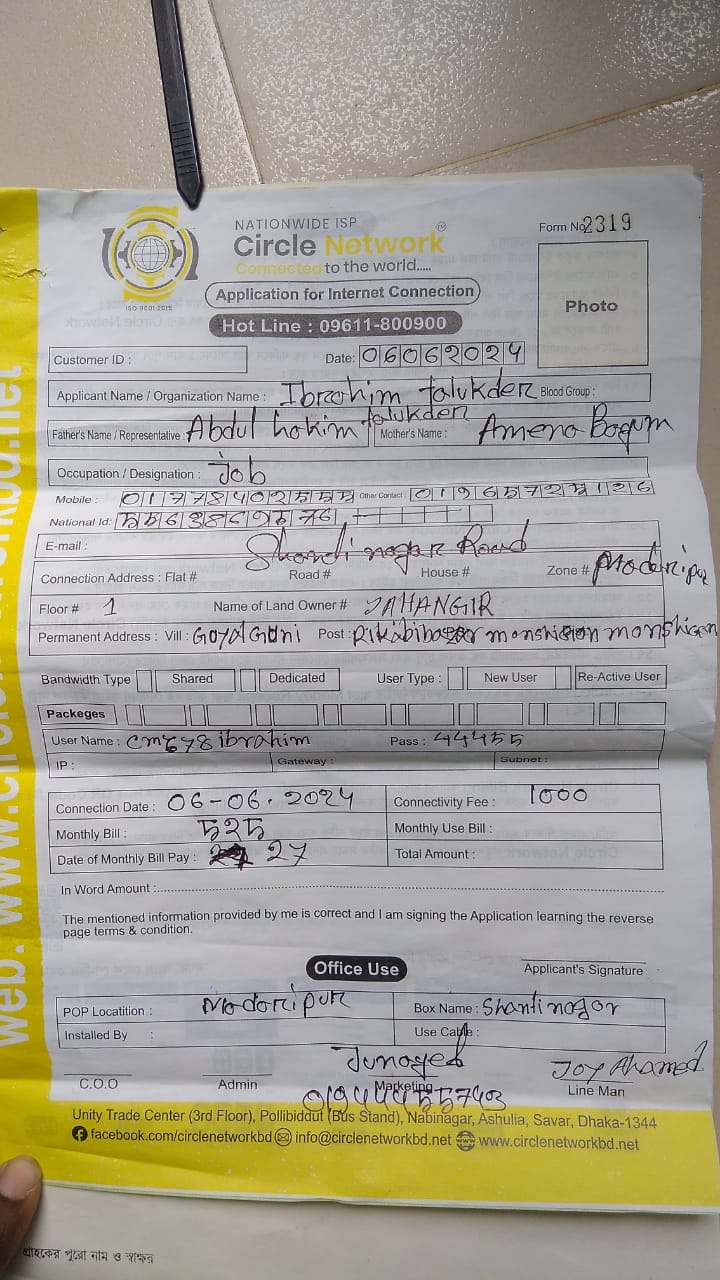 NATIONWIDE ISP
Circle Network
Connected to the world.....
ISO 9001:2015
Form No 2319
Photo
Application for Internet Connection
Hot Line : 09611-800900
Customer ID :
Date: 06062024
Applicant Name / Organization Name : Ibrahim talukder Blood Group :
Father's Name / Representative : Abdul hokim talukder Mother's Name : Amena Begum
Occupation / Designation : Job
Mobile : Other Contact :
National Id:
E-mail :
Connection Address : Flat # Road # House # Zone #
Floor # 1 Name of Land Owner # JAHANGIR
Permanent Address : Vill : Post :
Bandwidth Type Shared Dedicated User Type : New User Re-Active User
Packeges
User Name : Pass : 44455
IP : Gateway : Subnet :
Connection Date : 06-06.2024 Connectivity Fee : 1000
Monthly Bill : 525 Monthly Use Bill :
Date of Monthly Bill Pay : 27 Total Amount :
In Word Amount :
The mentioned information provided by me is correct and I am signing the Application learning the reverse
page terms & condition.
Office Use
Applicant's Signature
POP Locatition : Modoripur Box Name : Shantinogor
Installed By : Use Cable :
Junayed Joy Ahamed
C.O.O Admin Marketing Line Man
Unity Trade Center (3rd Floor), Pollibiddut (Bus Stand), Nabinagar, Ashulia, Savar, Dhaka-1344
facebook.com/circlenetworkbd info@circlenetworkbd.net www.circlenetworkbd.net
গ্রাহকের পুরো নাম ও স্বাক্ষর